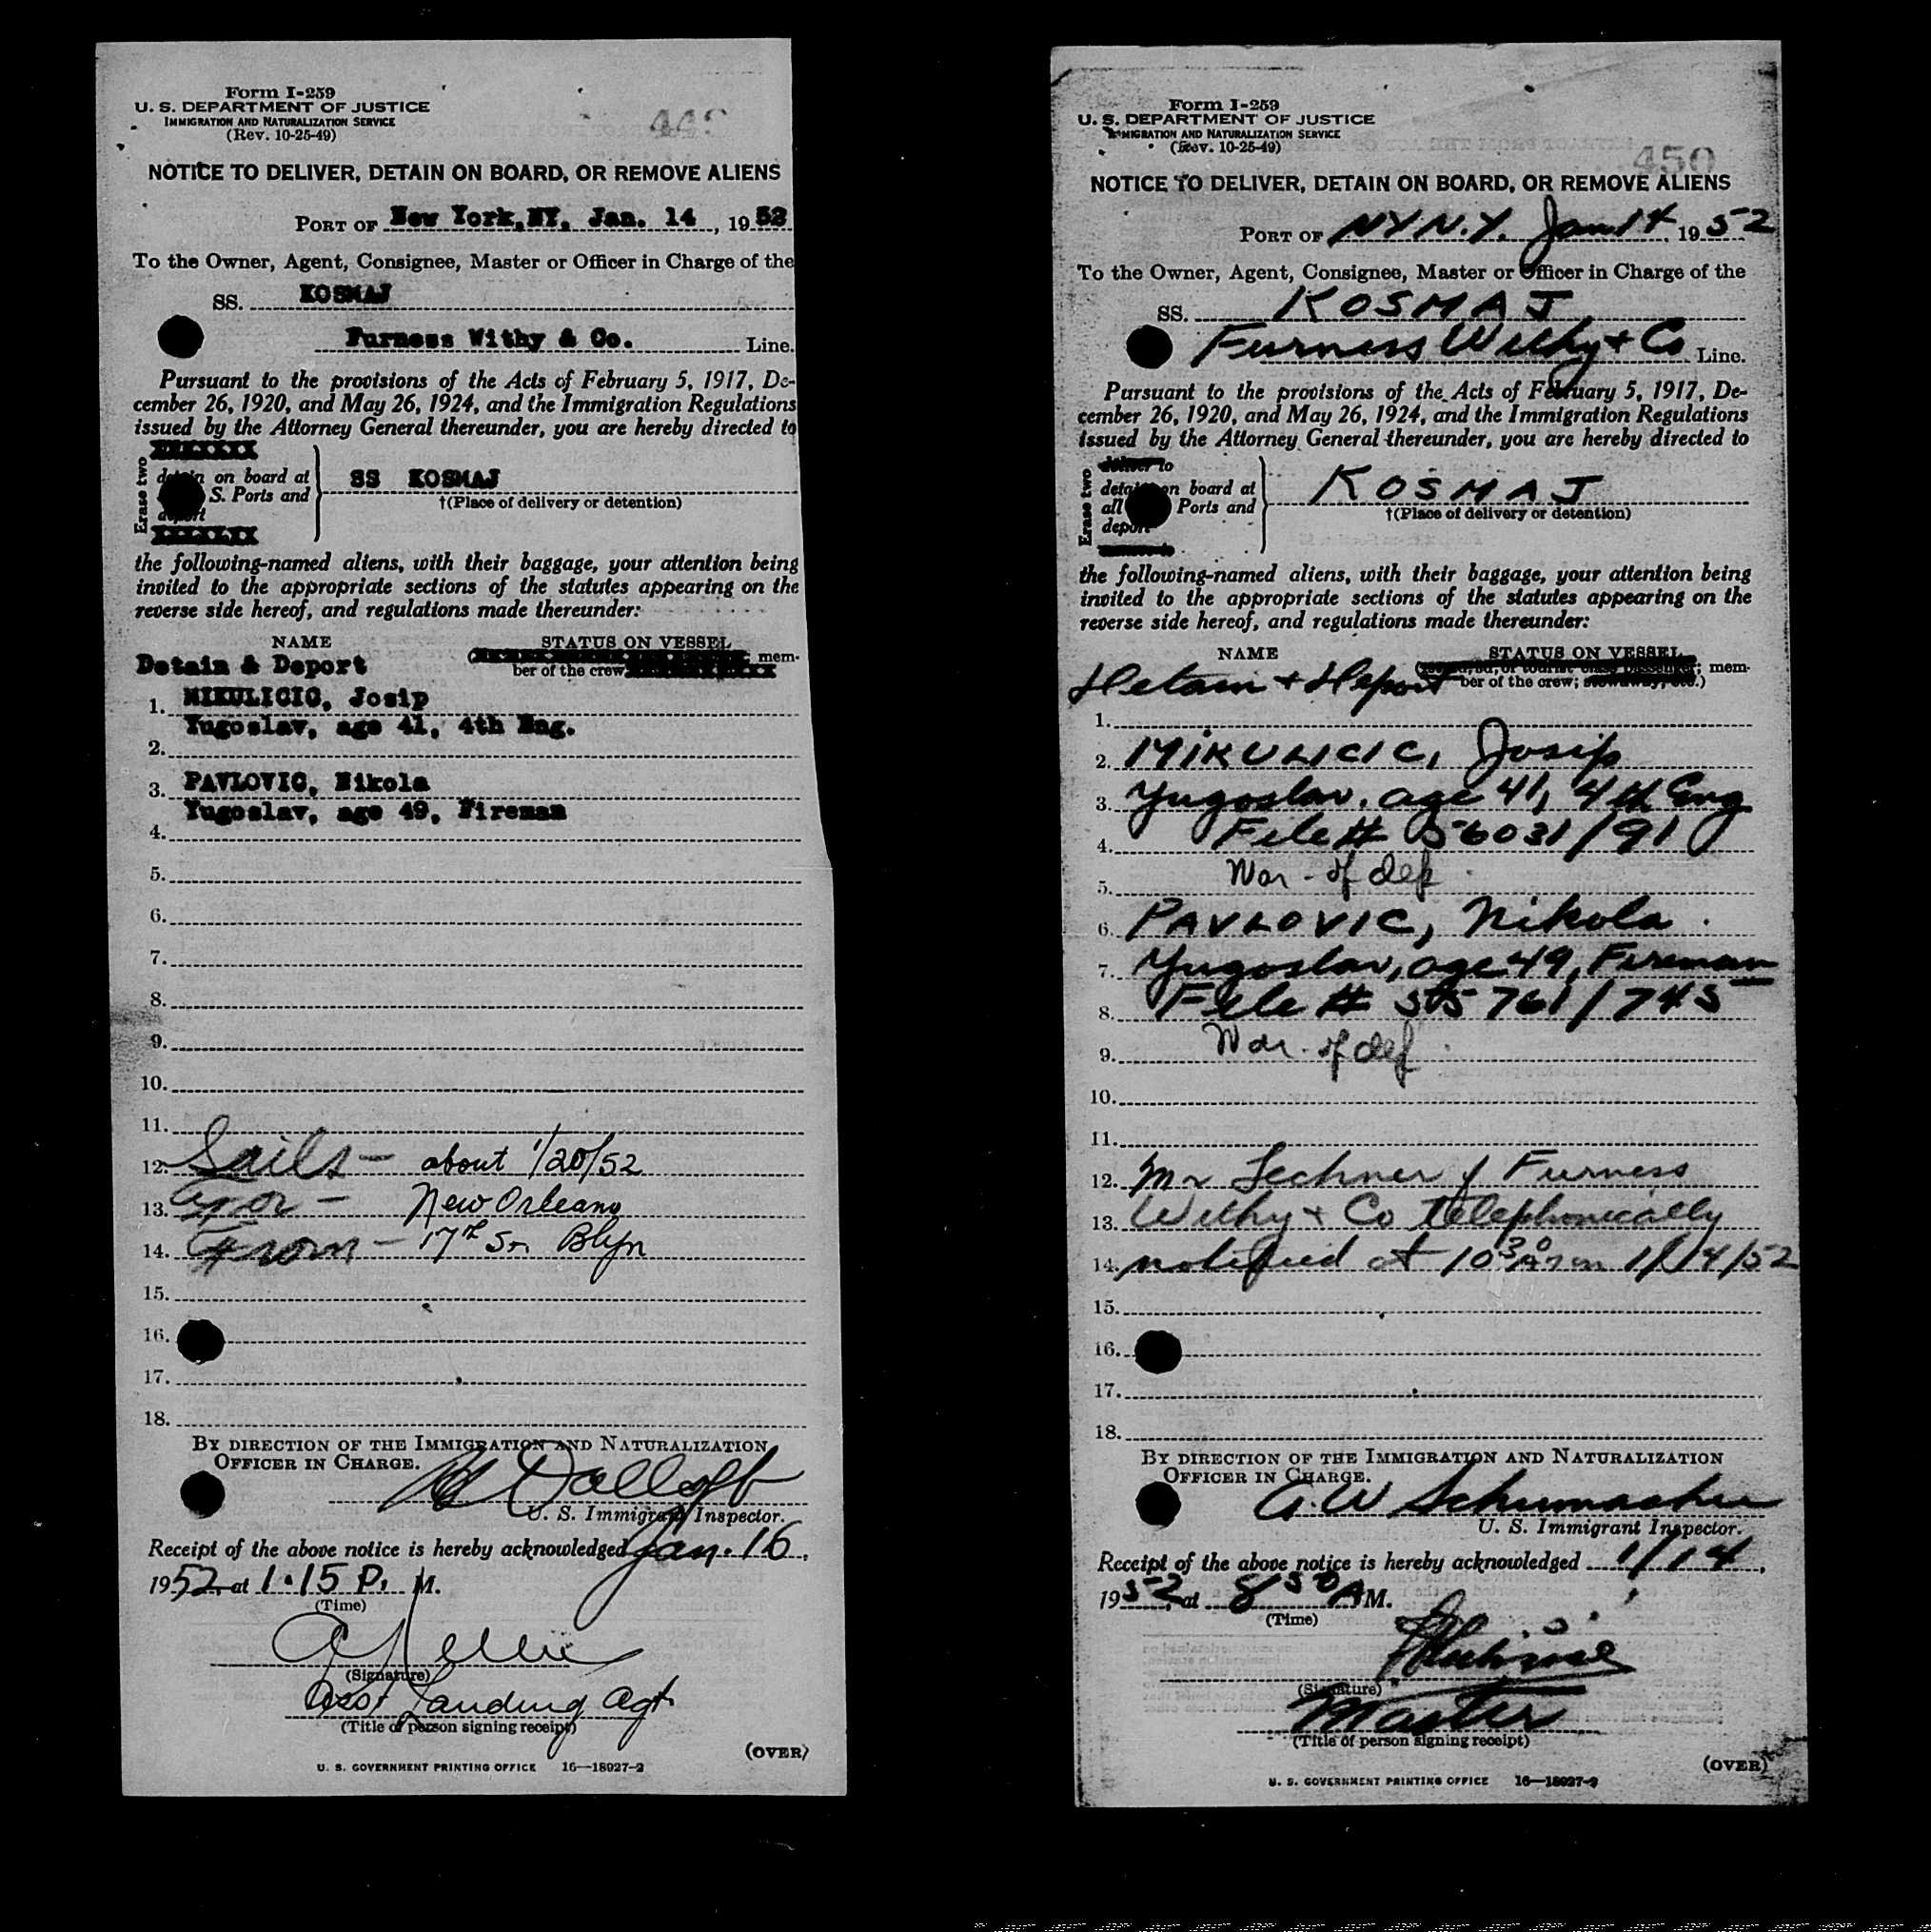 Form I-259
U. S. DEPARTMENT OF JUSTICE
IMMIGRATION AND NATURALIZATION SERVICE
(Rev. 10-25-49)
NOTICE TO DELIVER, DETAIN ON BOARD, OR REMOVE ALIENS
PORT OF New York, NY, Jan. 14, 1952
To the Owner, Agent, Consignee, Master or Officer in Charge of the
SS. KOSMAJ
Furness Withy & Co. Line.
Pursuant to the provisions of the Acts of February 5, 1917, De-
cember 26, 1920, and May 26, 1924, and the Immigration Regulations
issued by the Attorney General thereunder, you are hereby directed to
Erase two
detain on board at
S. Ports and
deport
SS KOSMAJ
†(Place of delivery or detention)
the following-named aliens, with their baggage, your attention being
invited to the appropriate sections of the statutes appearing on the
reverse side hereof, and regulations made thereunder:
NAME STATUS ON VESSEL
Detain & Deport mem-
ber of the crew
1. MIKULICIC, Josip
Yugoslav, age 41, 4th Eng.
2.
3. PAVLOVIC, Nikola
Yugoslav, age 49, Fireman
4.
5.
6.
7.
8.
9.
10.
11.
12. Sails - about 1/20/52
13. For - New Orleans
14. From - 17th St. Blyn
15.
16.
17.
18.
BY DIRECTION OF THE IMMIGRATION AND NATURALIZATION
OFFICER IN CHARGE.
U. S. Immigrant Inspector.
Receipt of the above notice is hereby acknowledged Jan. 16,
1952, at 1.15 P. M.
(Time)
(Signature)
Asst Landing Agt.
(Title of person signing receipt)
(OVER)
U. S. GOVERNMENT PRINTING OFFICE 16—18027-2
Form I-259
U. S. DEPARTMENT OF JUSTICE
IMMIGRATION AND NATURALIZATION SERVICE
(Rev. 10-25-49)
450
NOTICE TO DELIVER, DETAIN ON BOARD, OR REMOVE ALIENS
PORT OF NY N.Y. Jan 14, 1952
To the Owner, Agent, Consignee, Master or Officer in Charge of the
SS. KOSMAJ
Furness Withy + Co Line.
Pursuant to the provisions of the Acts of February 5, 1917, De-
cember 26, 1920, and May 26, 1924, and the Immigration Regulations
issued by the Attorney General thereunder, you are hereby directed to
Erase two
deliver to
detain on board at
all Ports and
deport
KOSMAJ
†(Place of delivery or detention)
the following-named aliens, with their baggage, your attention being
invited to the appropriate sections of the statutes appearing on the
reverse side hereof, and regulations made thereunder:
NAME STATUS ON VESSEL
Detain + Deport mem-
ber of the crew;
1.
2. MIKULICIC, Josip
3. Yugoslav, age 41, 4th Eng
4. File # 56031/91
5. War - of dep
6. PAVLOVIC, Nikola
7. Yugoslav, age 49, Fireman
8. File # 55761/745
9. War. of dep
10.
11.
12. Mr Lechner of Furness
13. Withy + Co telephonically
14. notified at 10 30 am 1/14/52
15.
16.
17.
18.
BY DIRECTION OF THE IMMIGRATION AND NATURALIZATION
OFFICER IN CHARGE.
A. W Schumacher
U. S. Immigrant Inspector.
Receipt of the above notice is hereby acknowledged 1/14,
1952, at 8 50 A M.
(Time)
(Signature)
Master
(Title of person signing receipt)
(OVER)
U. S. GOVERNMENT PRINTING OFFICE 16—18027-2